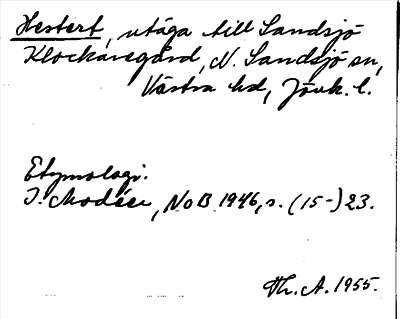 Hestert, utäga till Sandsjö
Klockaregård, N. Sandsjö sn,
Västra hd, Jönk. l.
Etymologi.
I. Modéer, NoB 1946, s. (15-)23.
Th. A. 1955.